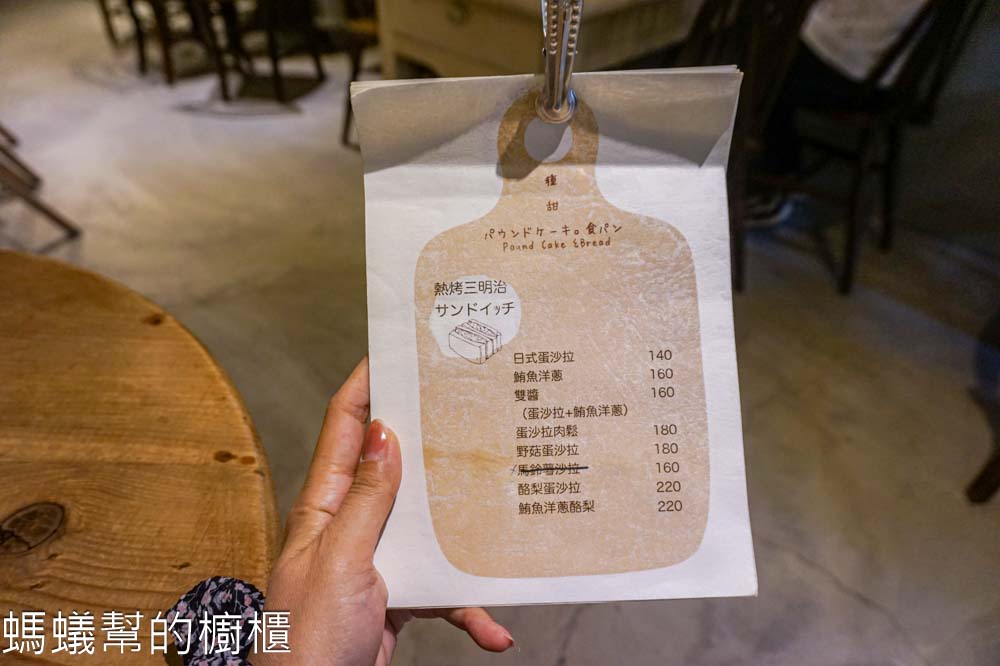 種
甜
パウンドケーキ。食パン
Pound Cake &Bread
熱烤三明治
サンドイッチ
日式蛋沙拉 140
鮪魚洋蔥 160
雙醬 160
（蛋沙拉+鮪魚洋蔥）
蛋沙拉肉鬆 180
野菇蛋沙拉 180
馬鈴薯沙拉 160
酪梨蛋沙拉 220
鮪魚洋蔥酪梨 220
螞蟻幫的櫥櫃